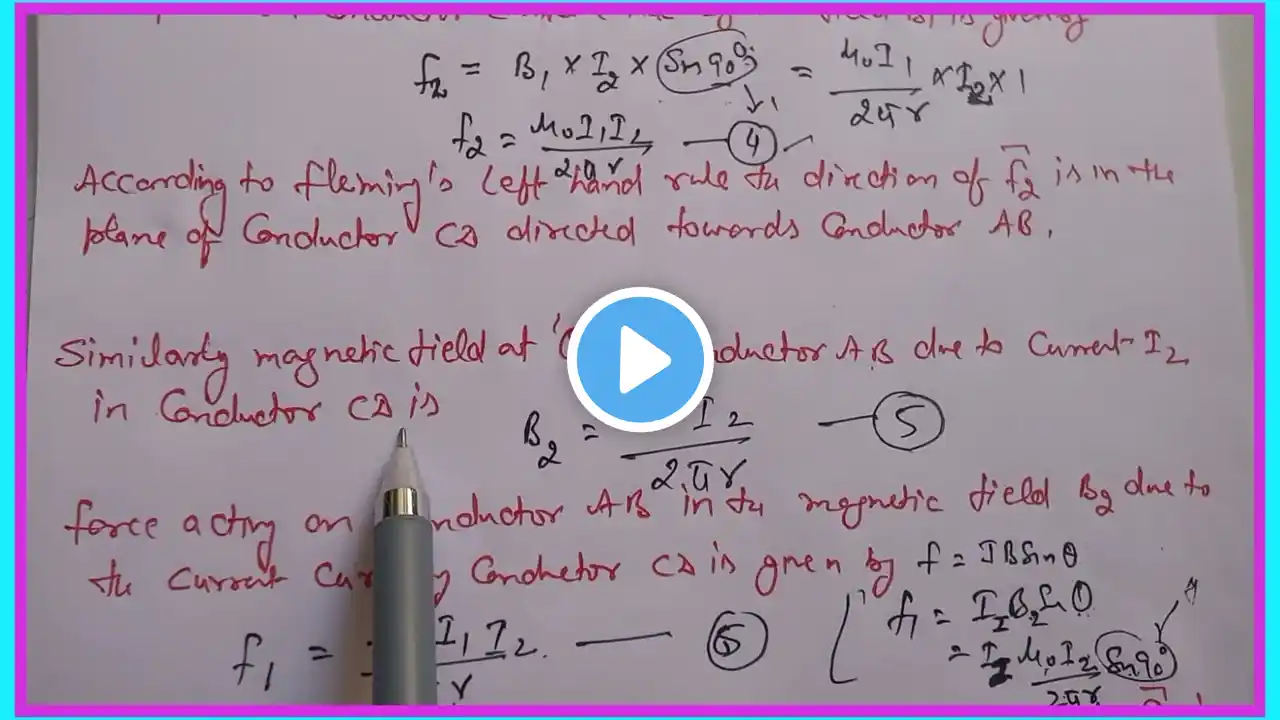 field B1 is given by
f2 = B1 × I2 × Sin 90° = μ0I1 / 2πr × I2 × 1
f2 = μ0I1I2 / 2πr — 4
According to fleming's left hand rule the direction of f2 is in the
plane of Conductor CD directed towards Conductor AB.
Similarly magnetic field at Conductor AB due to Current I2
in Conductor CD is
B2 = I2 / 2πr — 5
force acting on Conductor AB in the magnetic field B2 due to
the Current Conductor CD is given by f = IBSinθ
f1 = I1I2 / r — 6
f1 = B2 Sinθ
= μ0I2 / 2πr Sin 90°